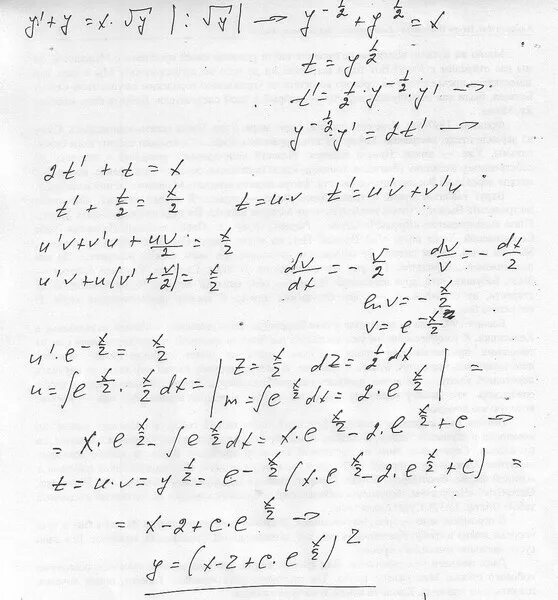 y' + y = x · √y | : √y | → y^{-1/2} + y^{1/2} = x
t = y^{1/2}
t' = 1/2 · y^{-1/2} · y' →
y^{-1/2} y' = 2t' →
2t' + t = x
t' + t/2 = x/2   t = u·v   t' = u'v + v'u
u'v + v'u + uv/2 = x/2
u'v + u(v' + v/2) = x/2   dv/dx = - v/2   dv/v = - dx/2
ln v = - x/2
v = e^{-x/2}
u' · e^{-x/2} = x/2
u = ∫ e^{x/2} · x/2 dx = | z = x/2   dz = 1/2 dx
m = ∫ e^{x/2} dx = 2 · e^{x/2} | =
= x · e^{x/2} - ∫ e^{x/2} dx = x · e^{x/2} - 2 · e^{x/2} + c →
t = u·v = y^{1/2} = e^{-x/2} (x · e^{x/2} - 2 · e^{x/2} + c) =
= x - 2 + c · e^{x/2} →
y = (x - 2 + c · e^{x/2})^2